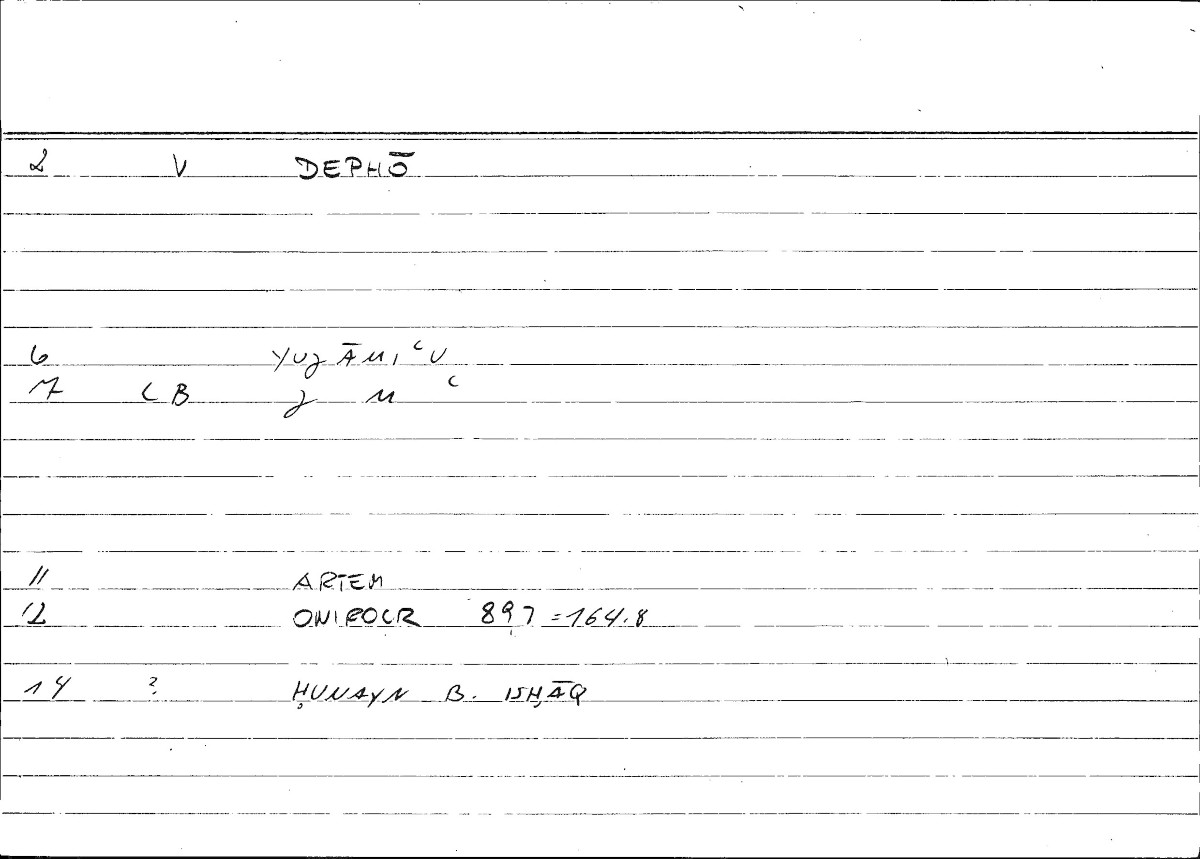 2 V DEPHŌ
6 YUJĀMIʿU
7 LB J M ʿ
11 ARTEM
12 ONIROCR 897 = 164.8
14 ? ḤUNAYN B. ISḤĀQ